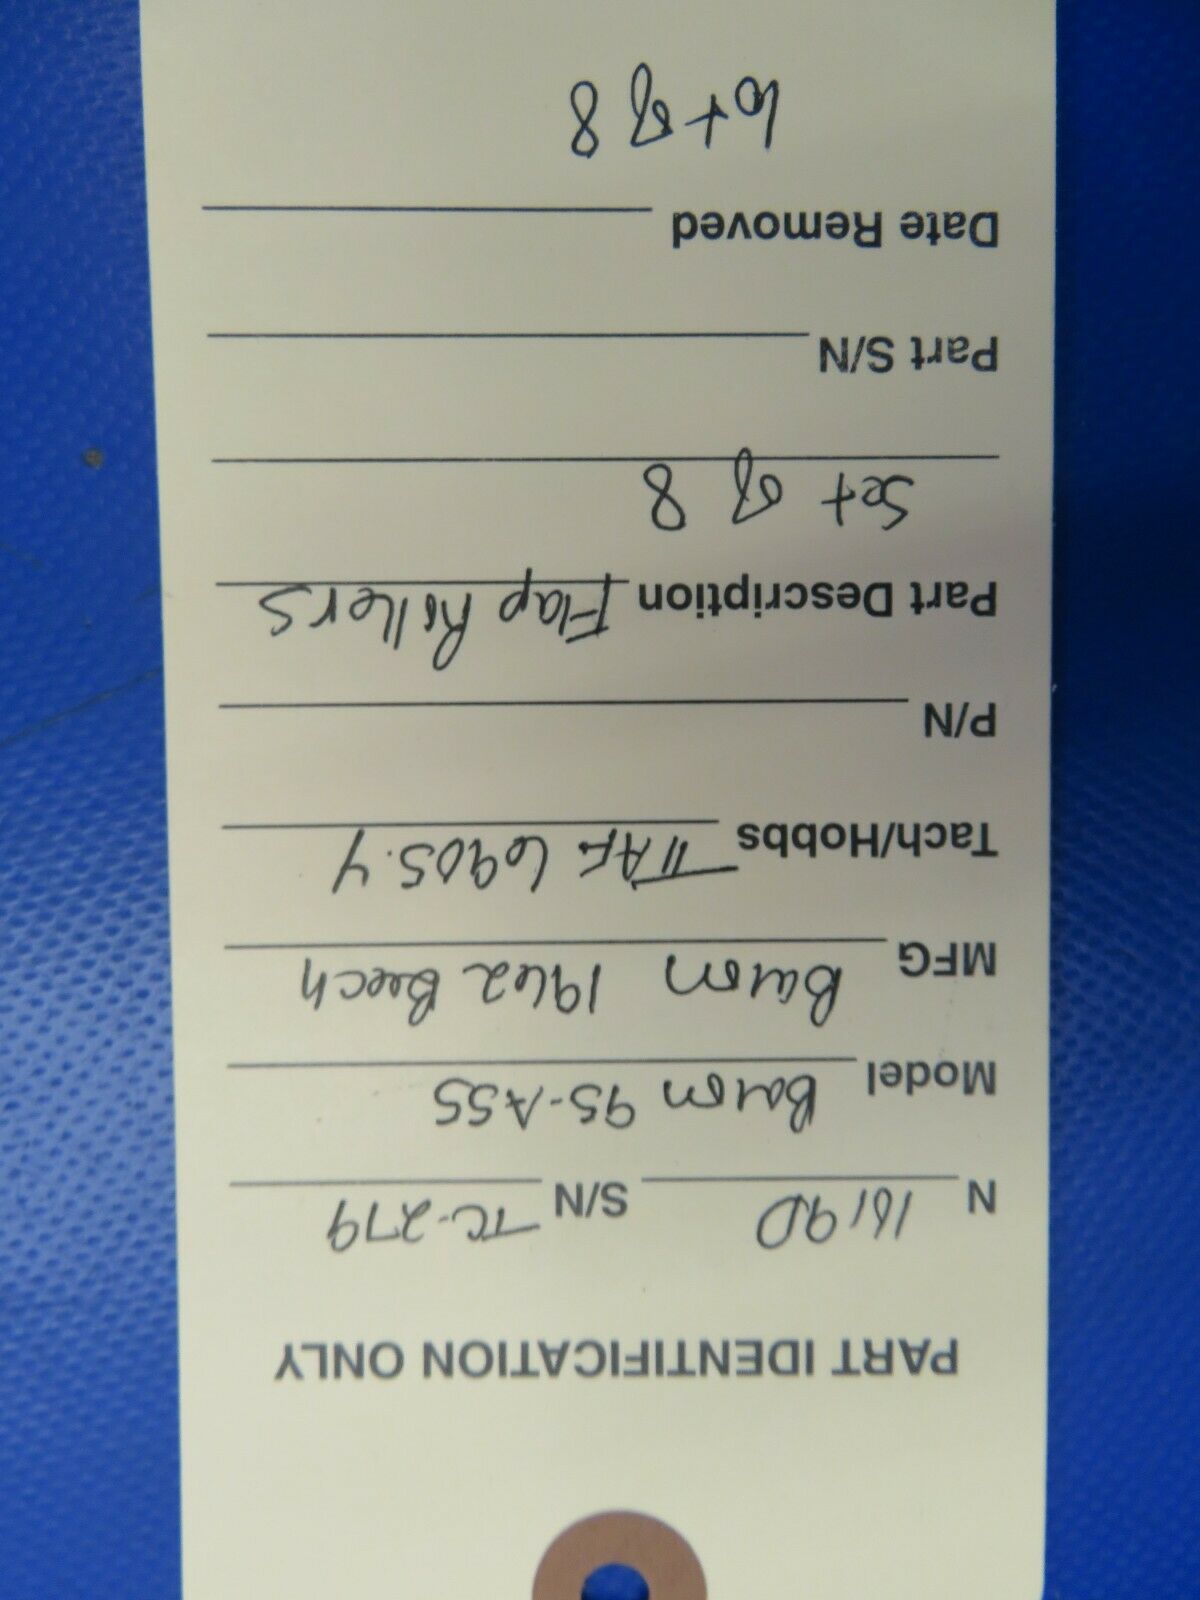 PART IDENTIFICATION ONLY
N 1619D S/N TC-279
Model Baron 95-A55
MFG Baron 1962 Beech
Tach/Hobbs TTAF 6905.4
P/N
Part Description Flap Rollers
Set of 8
Part S/N
Date Removed
lot of 8